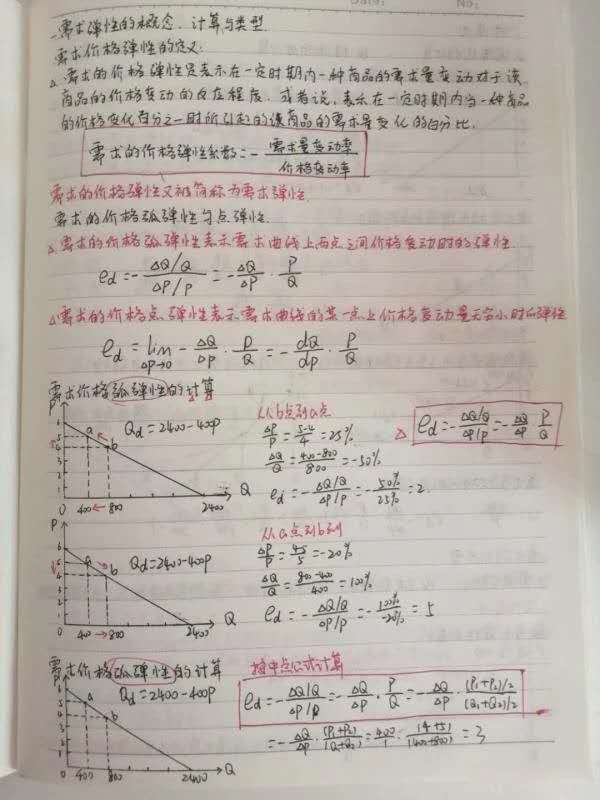 一.需求弹性的概念、计算与类型.
需求价格弹性的定义:
△ 需求的价格弹性是表示在一定时期内一种商品的需求量变动对于该
商品的价格变动的反应程度. 或者说, 表示在一定时期内当一种商品
的价格变化百分之一时所引起的该商品的需求量变化的百分比.
需求的价格弹性系数=- 需求量变动率/价格变动率
需求的价格弹性又被简称为需求弹性.
需求的价格弧弹性与点弹性.
△ 需求的价格弧弹性表示需求曲线上两点之间价格变动时的弹性.
ed=-(△Q/Q)/(△P/P)=-△Q/△P·P/Q
△需求的价格点弹性表示需求曲线的某一点上价格变动量无穷小时的弹性
ed=lim △P→0 -△Q/△P·P/Q=-dQ/dP·P/Q
需求价格弧弹性的计算
P
6
5
4
1
0
a
b
Qd=2400-400P
400←800
2400
Q
从b点到a点
△P/P=5-4/4=25%
△Q/Q=400-800/800=-50%
ed=-(△Q/Q)/(△P/P)=-(-50%/25%)=2.
△ ed=-(△Q/Q)/(△P/P)=-△Q/△P P/Q
P
6
5
4
0
a
b
Qd=2400-400P
400→800
2400
Q
从a点到b到
△P/P=4-5/5=-20%
△Q/Q=800-400/400=100%
ed=-(△Q/Q)/(△P/P)=-100%/-20%=5
需求价格弧弹性的计算
P
6
5
4
3
2
1
0
a
b
Qd=2400-400P
400
800
2400
Q
按中点公式计算
ed=-(△Q/Q)/(△P/P)=-△Q/△P·P/Q=-△Q/△P·((P1+P2)/2)/((Q1+Q2)/2)
=-△Q/△P·(P1+P2)/(Q1+Q2)=400/1·(4+5)/(400+800)=3